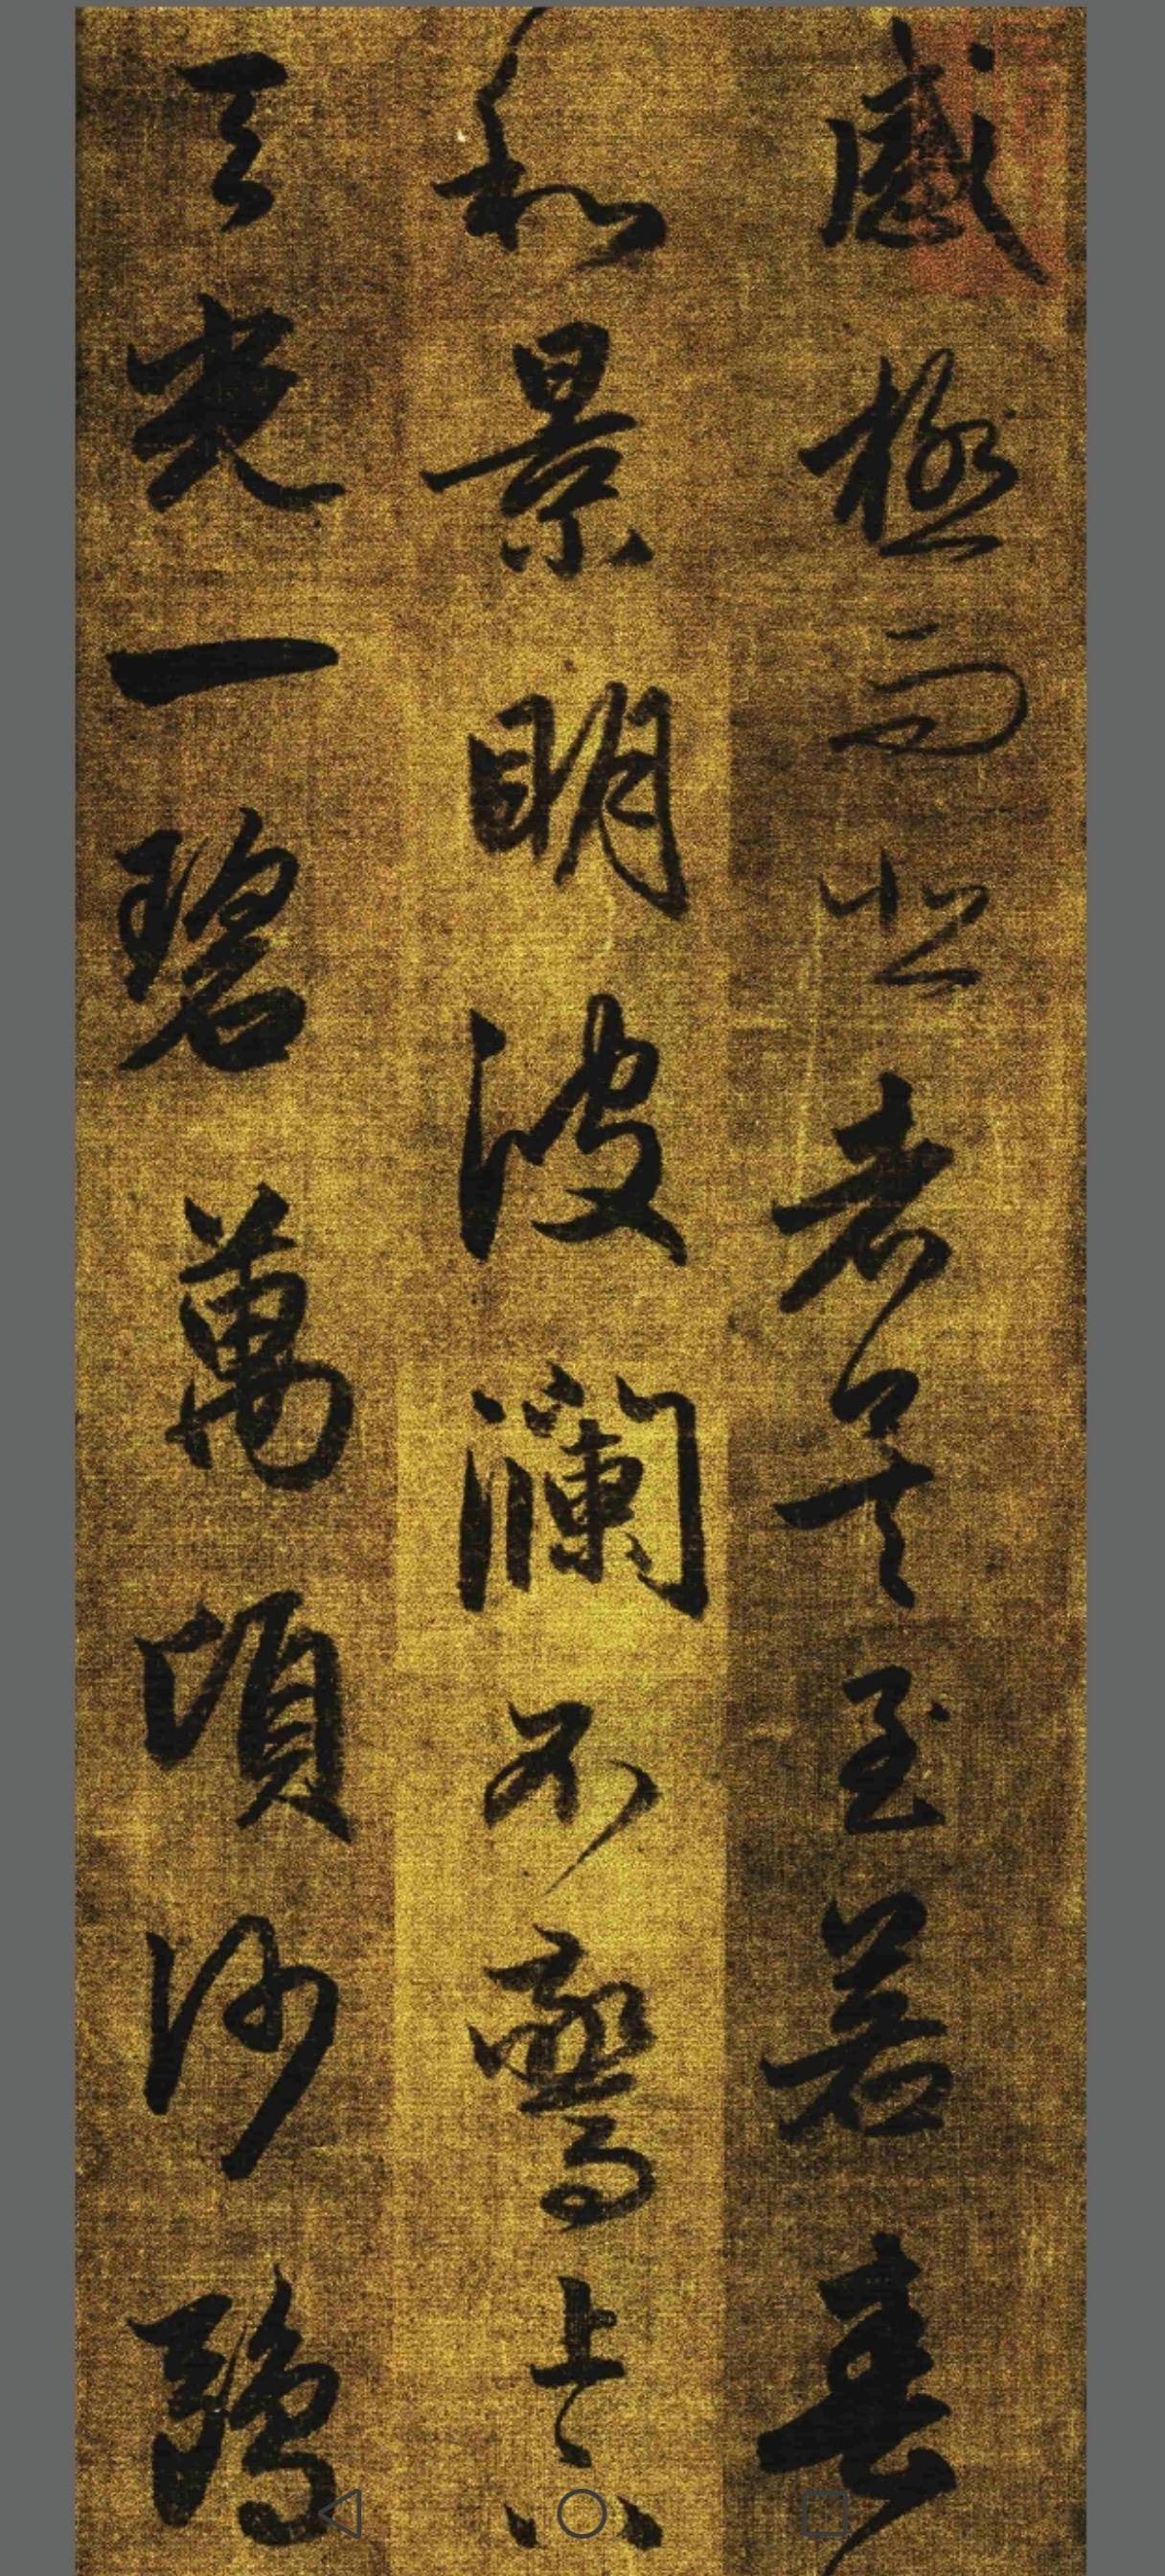 感極而悲者矣至若春
和景明波瀾不驚上下
天光一碧萬頃沙鷗